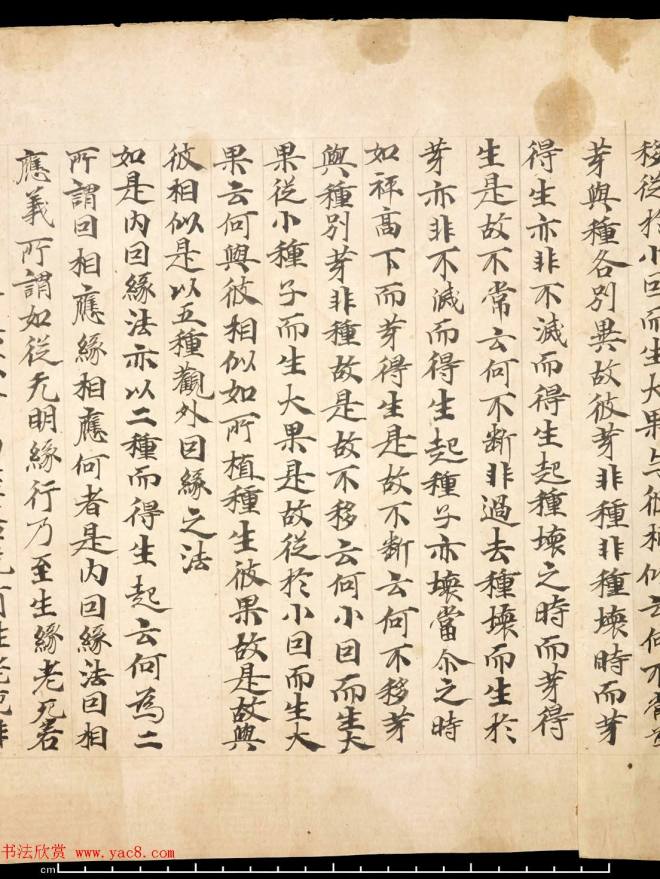 移從於小囙而生大果与彼相似云何不常
芽與種各別異故彼芽非種非種壞時而芽
得生亦非不滅而得生起種壞之時而芽得
生是故不常云何不斷非過去種壞而生於
芽亦非不滅而得生起種子亦壞當尒之時
如秤高下而芽得生是故不斷云何不移芽
與種別芽非種故是故不移云何小囙而生大
果從小種子而生大果是故從於小囙而生大
果云何與彼相似如所植種生彼果故是故與
彼相似是以五種觀外囙緣之法
如是内囙緣法亦以二種而得生起云何為二
所謂囙相應緣相應何者是内囙緣法囙相
應義所謂如從无明緣行乃至生緣老死若
书法欣赏 www.yac8.com
cm